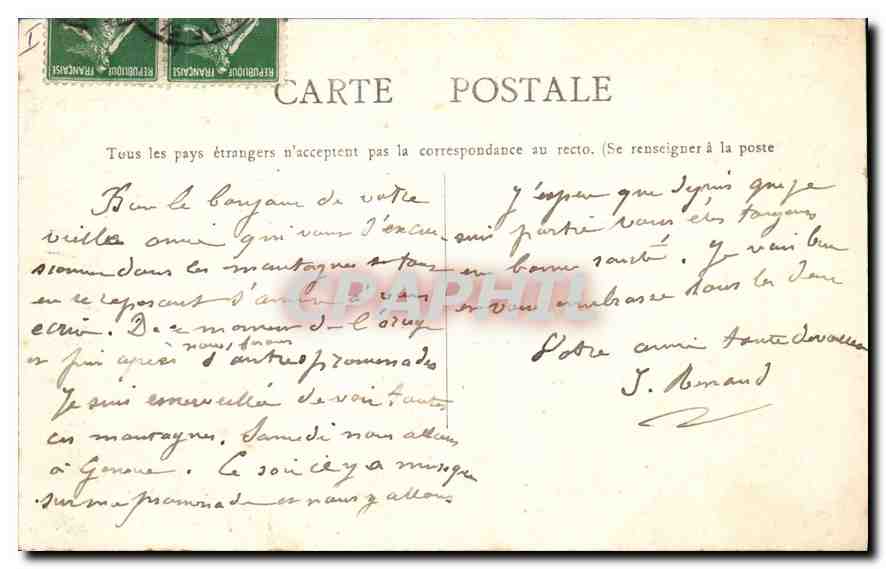 I
REPUBLIQUE FRANÇAISE
REPUBLIQUE FRANÇAISE
CARTE POSTALE
Tous les pays étrangers n'acceptent pas la correspondance au recto. (Se renseigner à la poste
le bonjour de votre
vieille amie qui vous
dans les montagnes
en se reposant s'amuse à vous
écrire. De ce moment de l'orage
et puis après nous ferons d'autres promenades
Je suis émerveillée de voir toutes
ces montagnes. Samedi nous allons
à Genève. Ce soir il y a musique
sur une promenade et nous y allons
J'espère que depuis que je
suis partie vous êtes toujours
en bonne santé. Je vais bien
et vous embrasse tous les deux
Votre amie toute dévouée
J. Renaud
CPAPHIL